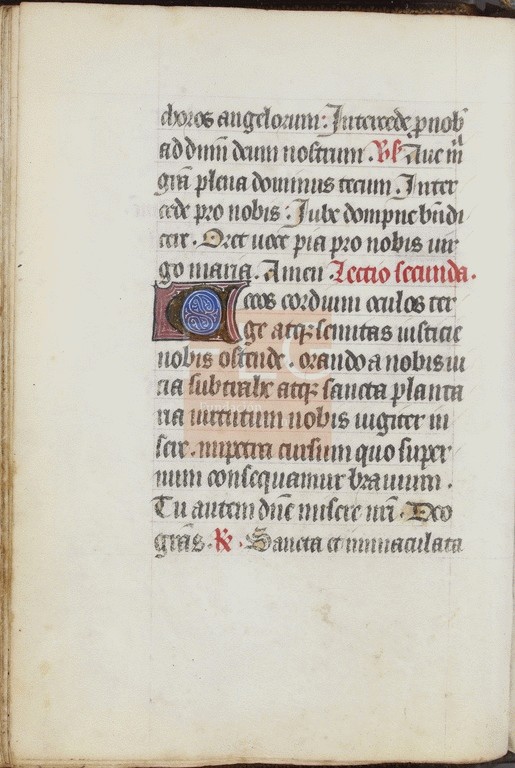 choros angelorum: Intercede p nob
ad dnm deum nostrum. Vs Aue m
gra plena dominus tecum. Inter
cede pro nobis: Iube dompne bndi
cere. Oret uoce pia pro nobis uir
go maria. Amen Lectio secunda.
Cecos cordium oculos ter
ge atqz semitas iusticie
nobis ostende. orando a nobis ui
cia subtrahe atqz sancta planta
ria uirtutum nobis iugiter in
sere. impetra cursum quo super
num consequamur brauium.
Tu autem dne misere nri. Deo
gras. R. Sancta et immaculata